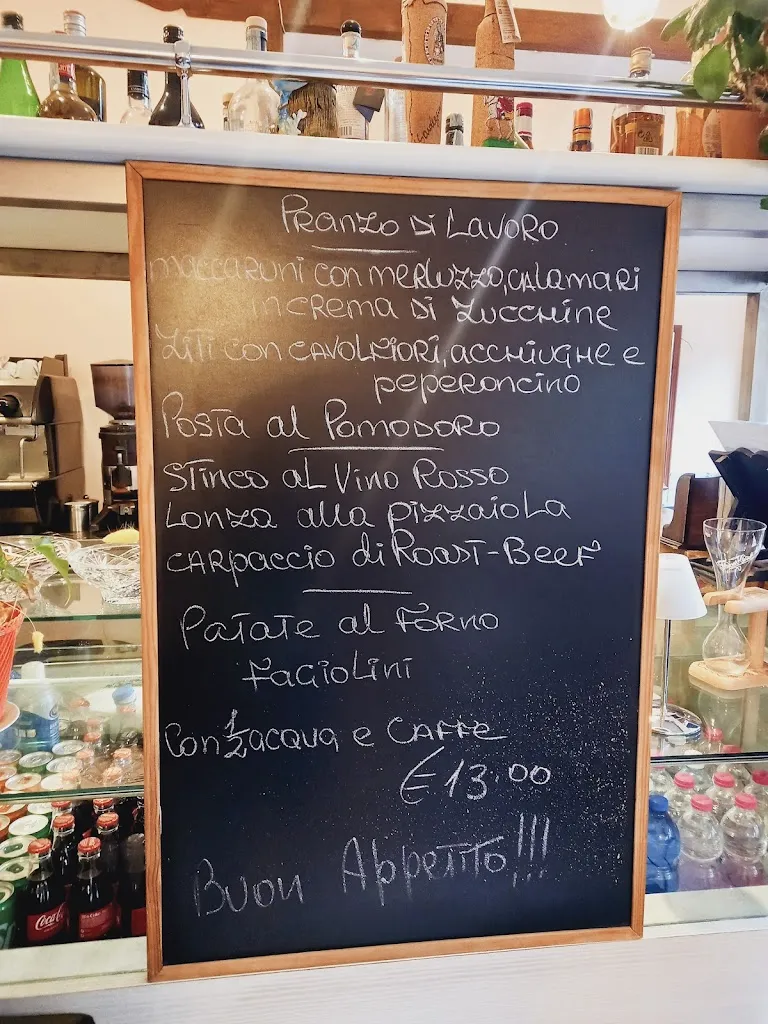 Pranzo di Lavoro
maccaruni con merluzzo, calamari
in crema di zucchine
Ziti con cavolfiori, acchiughe e
peperoncino
Pasta al Pomodoro
Stinco al Vino Rosso
Lonza alla pizzaiola
carpaccio di Roast-Beef
Patate al Forno
Fagiolini
Con 1/2 acqua e caffe
€ 13.00
Buon Appetito!!!
Coca-Cola